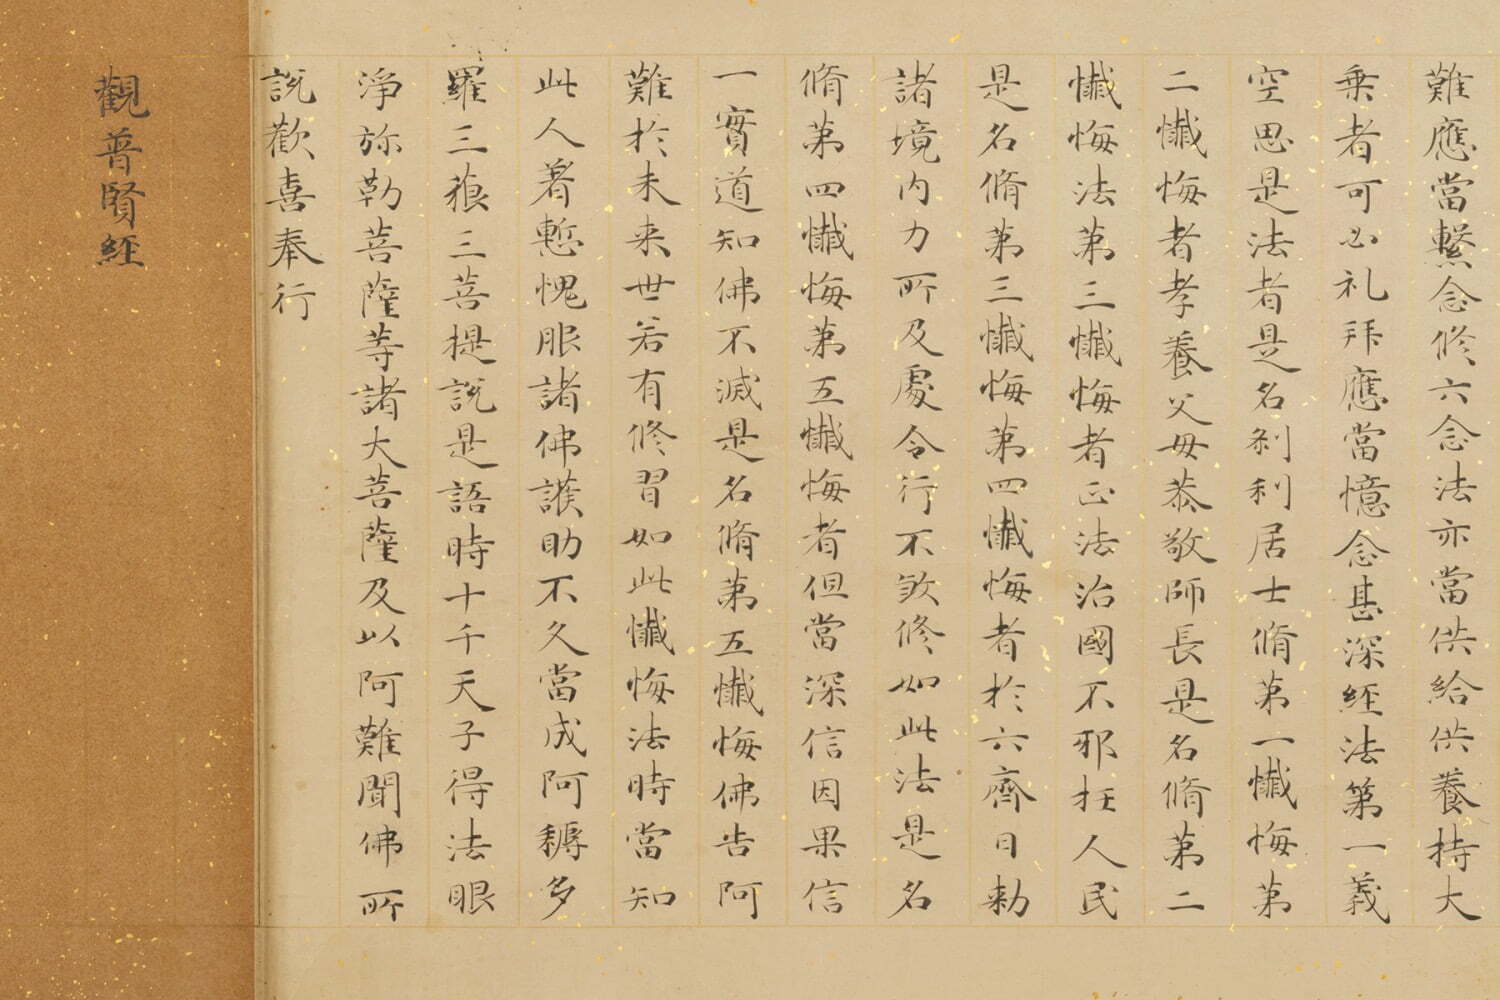 難應當繫念修六念法亦當供給供養持大
乗者可必礼拜應當憶念甚深経法第一義
空思是法者是名刹利居士脩第一懴悔第
二懴悔者孝養父母恭敬師長是名脩第二
懴悔法第三懴悔者正法治國不邪枉人民
是名脩第三懴悔第四懴悔者於六齊日勅
諸境内力所及處令行不煞修如此法是名
脩第四懴悔第五懴悔者但當深信因果信
一實道知佛不滅是名脩第五懴悔佛告阿
難於未来世若有修習如此懴悔法時當知
此人著慙愧服諸佛護助不久當成阿耨多
羅三藐三菩提説是語時十千天子得法眼
淨弥勒菩薩等諸大菩薩及以阿難聞佛所
説歡喜奉行
觀普賢経